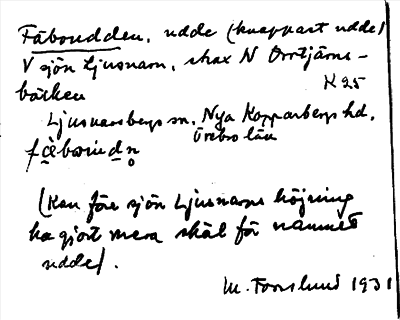 Fäboudden, udde (knappast udde)
V sjön Ljusnarn, strax N Orrtjärns-
bäcken K 25
Ljusnarsbergs sn, Nya Kopparbergs hd,
Örebro län
(Kan före sjön Ljusnarns höjning
ha gjort mera skäl för namnet
udde).
M. Forslund 1931